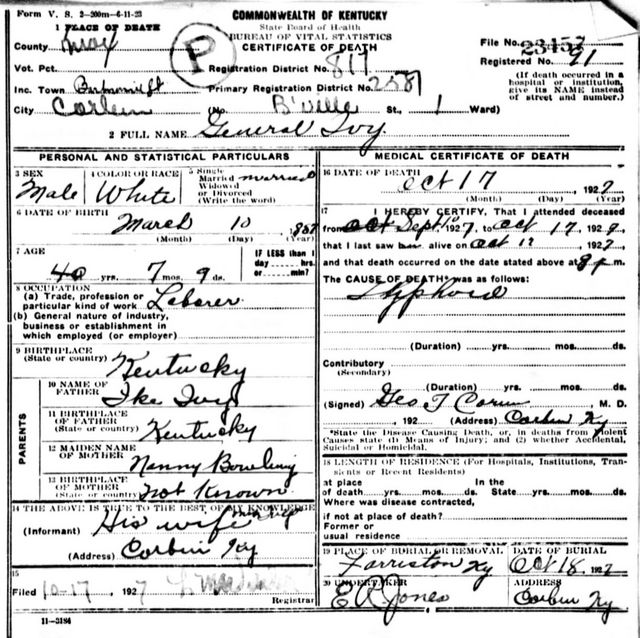 Form V. S. 2-200m-6-11-23
COMMONWEALTH OF KENTUCKY
State Board of Health
BUREAU OF VITAL STATISTICS
CERTIFICATE OF DEATH
1 PLACE OF DEATH
County
P
File No. 23157
Registered No. 71
Vot. Pct.
Registration District No. 817
(If death occurred in a hospital or institution, give its NAME instead of street and number.)
Inc. Town
Primary Registration District No. 2587
City Corbin
(No. B'ville St., 1 Ward)
2 FULL NAME General Ivy.
PERSONAL AND STATISTICAL PARTICULARS
3 SEX
Male
4 COLOR OR RACE
White
5 Single
Married married
Widowed
or Divorced
(Write the word)
6 DATE OF BIRTH
March 10 887
(Month) (Day) (Year)
7 AGE
40 yrs. 7 mos. 9 ds.
IF LESS than 1
day hrs.
or min.?
8 OCCUPATION
(a) Trade, profession or
particular kind of work Laborer
(b) General nature of industry,
business or establishment in
which employed (or employer)
9 BIRTHPLACE
(State or country) Kentucky
PARENTS
10 NAME OF
FATHER Ike Ivy
11 BIRTHPLACE
OF FATHER
(State or country) Kentucky
12 MAIDEN NAME
OF MOTHER Nanny Bowling
13 BIRTHPLACE
OF MOTHER
(State or country) Not Known
14 THE ABOVE IS TRUE TO THE BEST OF MY KNOWLEDGE
(Informant) His wife
(Address) Corbin Ky
15
Filed 10-17, 1927
Registrar
11-3184
MEDICAL CERTIFICATE OF DEATH
16 DATE OF DEATH
Oct 17, 1927
(Month) (Day) (Year)
17 I HEREBY CERTIFY, That I attended deceased
from Sept 1927, to Oct 17, 1927,
that I last saw alive on Oct 17, 1927
and that death occurred on the date stated above at 8 P m.
The CAUSE OF DEATH* was as follows:
Typhoid
(Duration) yrs. mos. ds.
Contributory
(Secondary)
(Duration) yrs. mos. ds.
(Signed) Geo T , M. D.
, 192 (Address) Corbin Ky
*State the Disease Causing Death, or, in deaths from Violent
Causes state (1) Means of Injury; and (2) whether Accidental,
Suicidal or Homicidal.
18 LENGTH OF RESIDENCE (For Hospitals, Institutions, Transients or Recent Residents)
at place In the
of death yrs. mos. ds. State yrs. mos. ds.
Where was disease contracted,
if not at place of death?
Former or
usual residence
19 PLACE OF BURIAL OR REMOVAL
Farriston Ky
DATE OF BURIAL
Oct 18, 1927
20 UNDERTAKER
E R Jones
ADDRESS
Corbin Ky